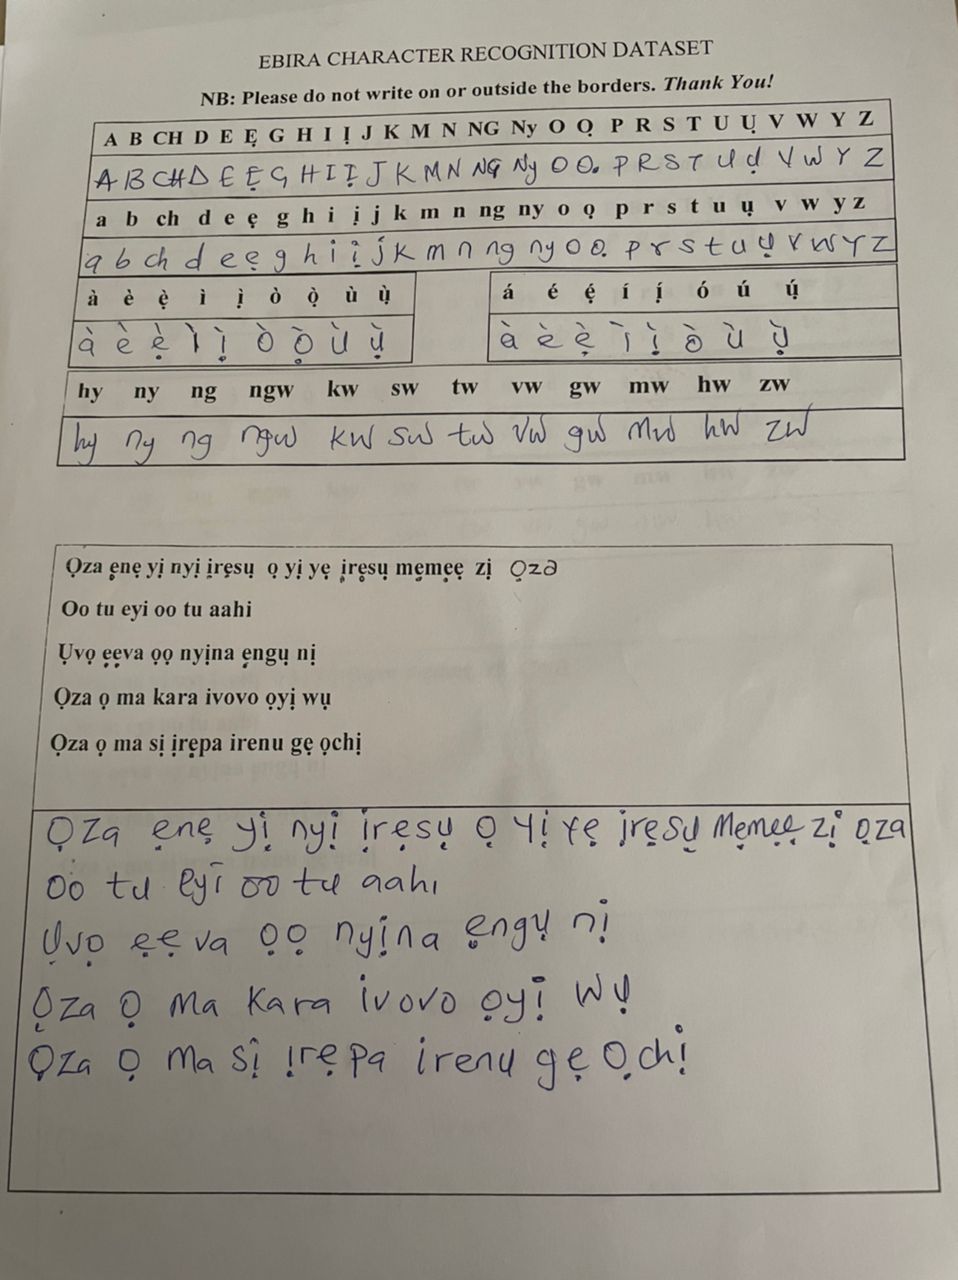 EBIRA CHARACTER RECOGNITION DATASET
NB: Please do not write on or outside the borders. Thank You!
A B CH D E Ẹ G H I Ị J K M N NG Ny O Ọ P R S T U Ụ V W Y Z
A B CH D E Ẹ G H I Ị J K M N NG Ny O Ọ P R S T U Ụ V W Y Z
a b ch d e ẹ g h i ị j k m n ng ny o ọ p r s t u ụ v w y z
a b ch d e ẹ g h i ị j k m n ng ny o ọ p r s t u ụ v w y z
à è ẹ̀ ì ị̀ ò ọ̀ ù ụ̀ á é ẹ́ í ị́ ó ú ụ́
à è ẹ̀ ì ị̀ ò ọ̀ ù ụ̀ à è ẹ̀ ì ị̀ ò ù ụ̀
hy ny ng ngw kw sw tw vw gw mw hw zw
hy ny ng ngw kw sw tw vw gw mw hw zw
Ọza ẹnẹ yị nyị ịrẹsụ ọ yị yẹ ịrẹsụ mẹmẹẹ zị ọza
Oo tu eyi oo tu aahi
Ụvọ ẹẹva ọọ nyịna ẹngụ nị
Ọza ọ ma kara ivovo ọyị wụ
Ọza ọ ma sị ịrẹpa irenu gẹ ọchị
Ọza ẹnẹ yị nyị ịrẹsụ ọ yị yẹ ịrẹsụ Mẹmẹẹ zị ọza
Oo tu eyi oo tu aahi
Ụvọ ẹẹva ọọ nyịna ẹngụ nị
Ọza ọ ma kara ivovo ọyị wụ
Ọza ọ ma sị ịrẹpa irenu gẹ ọchị